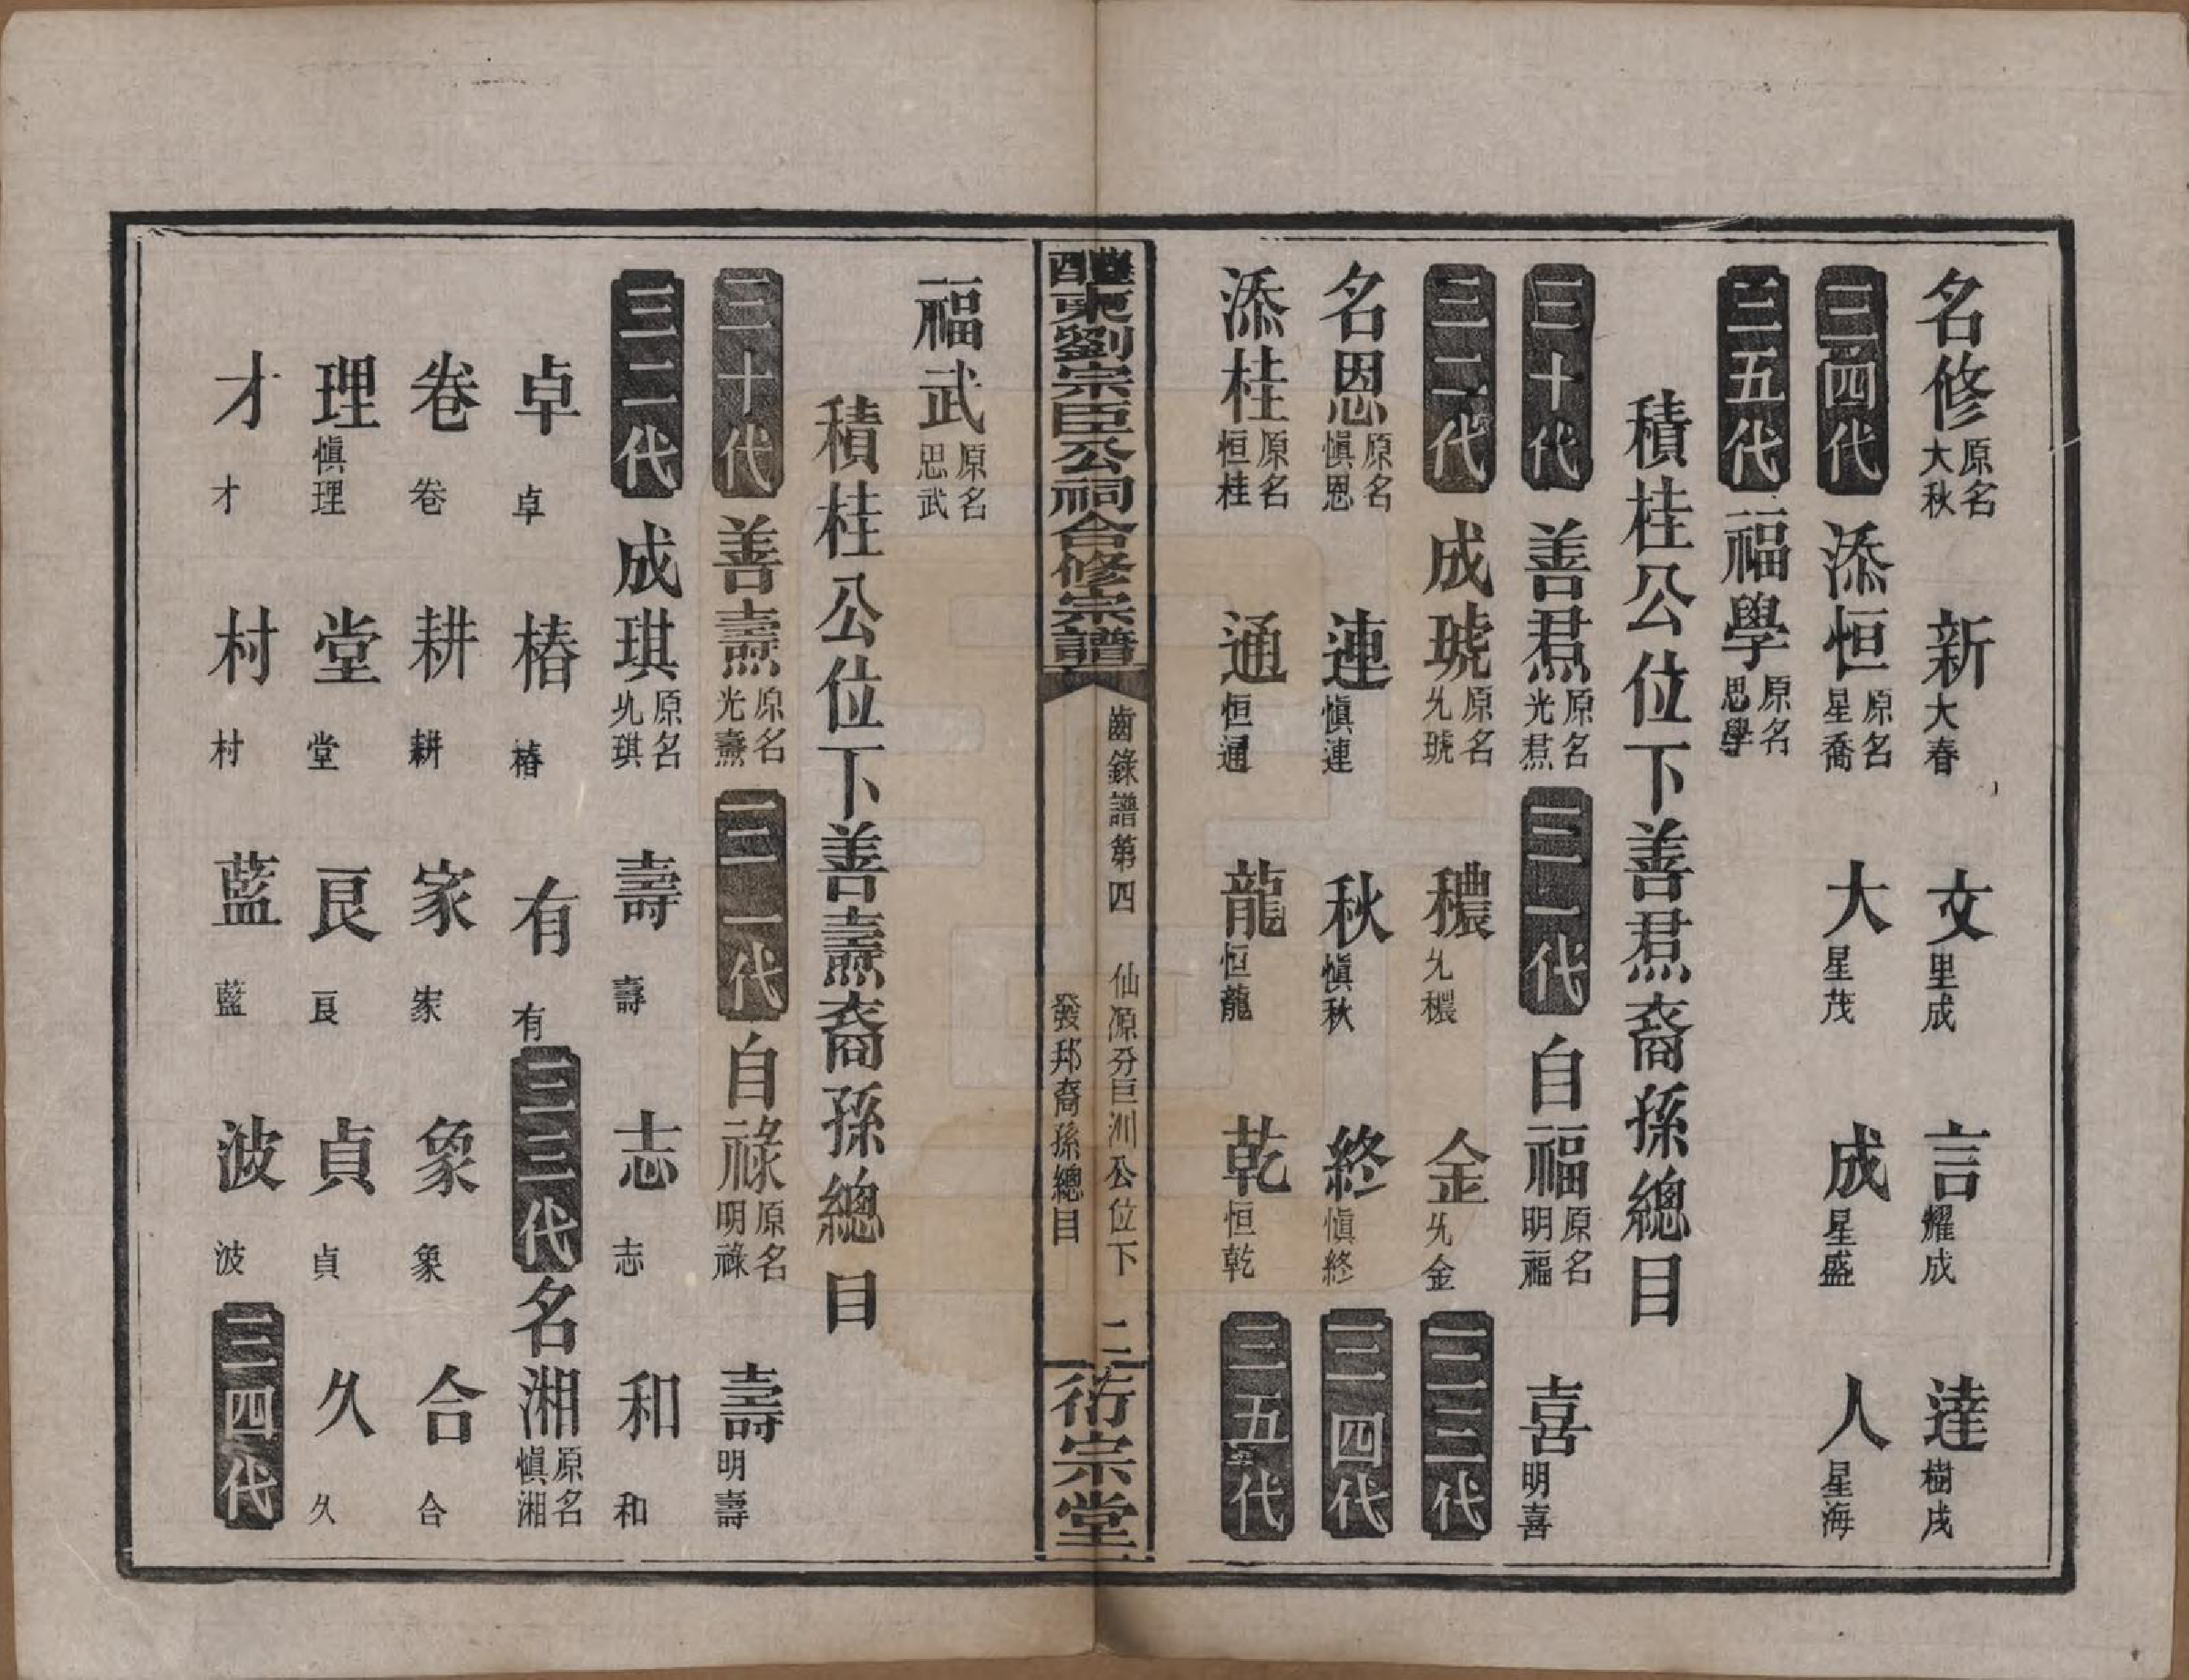 名修原名大秋　新大春　文里成　言耀成　達樹成
三四代　添恒原名星喬　大星茂　成星盛　人星海
三五代　福學原名思學
積桂公位下善焄裔孫總目
三十代　善焄原名光焄　三一代　自福原名明福　喜明喜
三二代　成琥原名允琥　穠允穠　金允金　三三代
名恩原名愼恩　連愼連　秋愼秋　終愼終　三四代
添桂原名恒桂　通恒通　龍恒龍　乾恒乾　三五代
醴東劉宗臣公祠合修宗譜
齒錄譜第四　仙源分巨洲公位下　二
發邦裔孫總目
衍宗堂
福武原名思武
積桂公位下善燾裔孫總目
三十代　善燾原名光燾　三一代　自祿原名明祿　壽明壽
三二代　成琪原名允琪　壽壽　志志　和和
卓卓　椿椿　有有　三三代　名湘原名愼湘
卷卷　耕耕　家家　象象　合合
理愼理　堂堂　良良　貞貞　久久
才才　村村　藍藍　波波　三四代